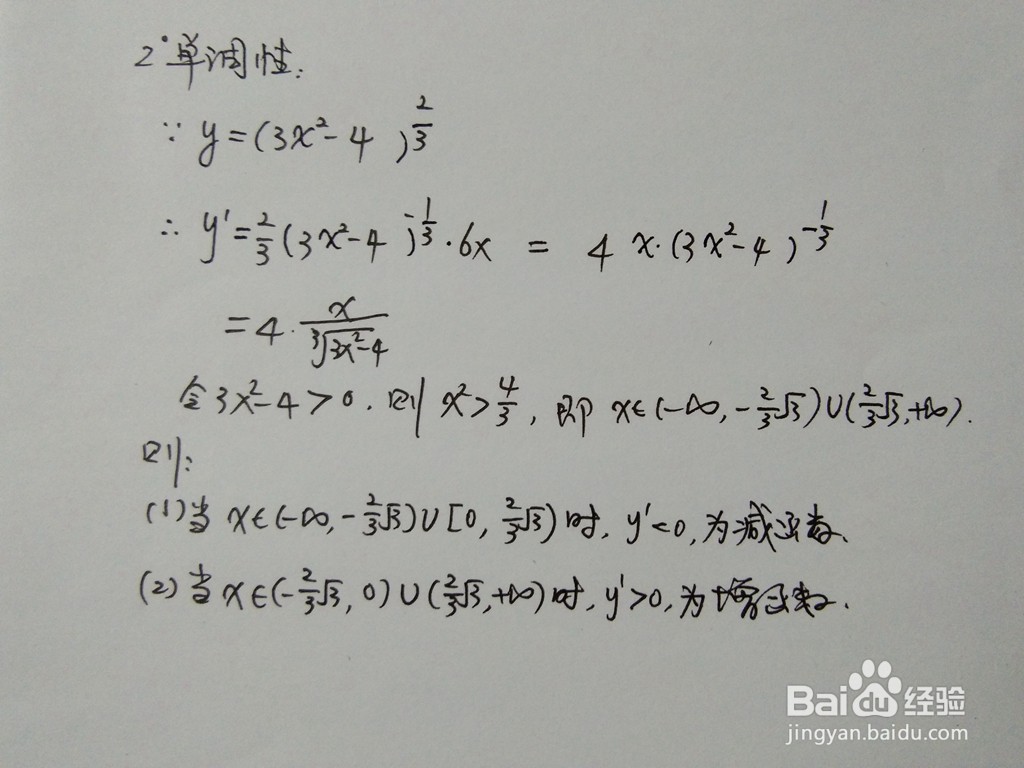 2°单调性:
∵ y=(3x²-4)^(2/3)
∴ y'=2/3(3x²-4)^(-1/3)·6x = 4x·(3x²-4)^(-1/3)
=4·x/∛(3x²-4)
令3x²-4>0,则x²>4/3,即x∈(-∞,-2/3√3)∪(2/3√3,+∞).
则:
(1)当x∈(-∞,-2/3√3)∪[0,2/3√3)时,y'<0,为减函数.
(2)当x∈(-2/3√3,0)∪(2/3√3,+∞)时,y'>0,为增函数.
Baidu经验
jingyan.baidu.com